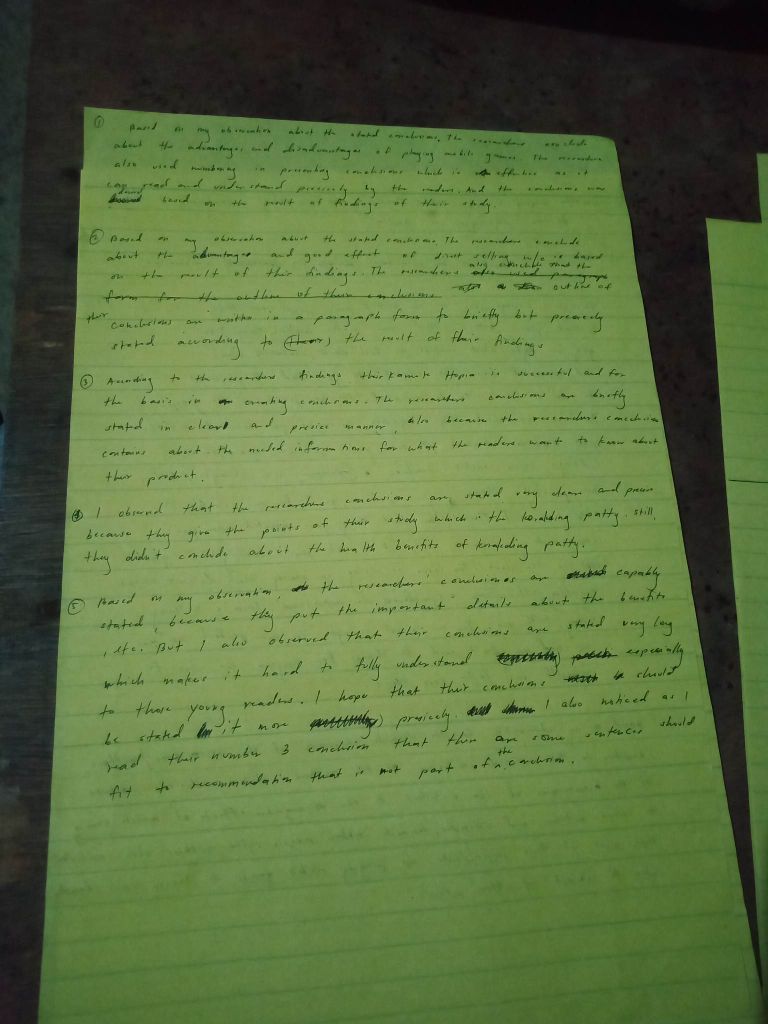 ① Based on my observation about the stated conclusions, The researchers conclude
about the advantages and disadvantages of playing mobile games. The researchers
also used numbering in presenting conclusions which is effective as it
can read and understand precisely by the readers. And the conclusions was
based on the result of findings of their study.
② Based on my observation about the stated conclusions, The researchers conclude
about the advantages and good effect of direct selling w/c is based
on the result of their findings. The researchers also conclude that the
outline of
their conclusions are written in a paragraph form to briefly but precisely
stated according to the result of their findings
③ According to the researchers findings their Kamote Hopia is successful and for
the basis in creating conclusions. The researchers conclusions are briefly
stated in clear and presice manner, also because the researchers conclusion
contains about the needed informations for what the readers want to know about
their product.
④ I observed that the researchers conclusions are stated very clear and
because they give the points of their study which is the patty. still
they didn't conclude about the health benefits of patty.
⑤ Based on my observation, the researchers' conclusions are capably
stated, because they put the important details about the benefits
, etc. But I also observed that their conclusions are stated very long
which makes it hard to fully understand especially
to those young readers. I hope that their conclusions should
be stated it more presicely I also noticed as I
read their number 3 conclusion that there are some sentences should
fit to recommendation that is not part of the conclusion.